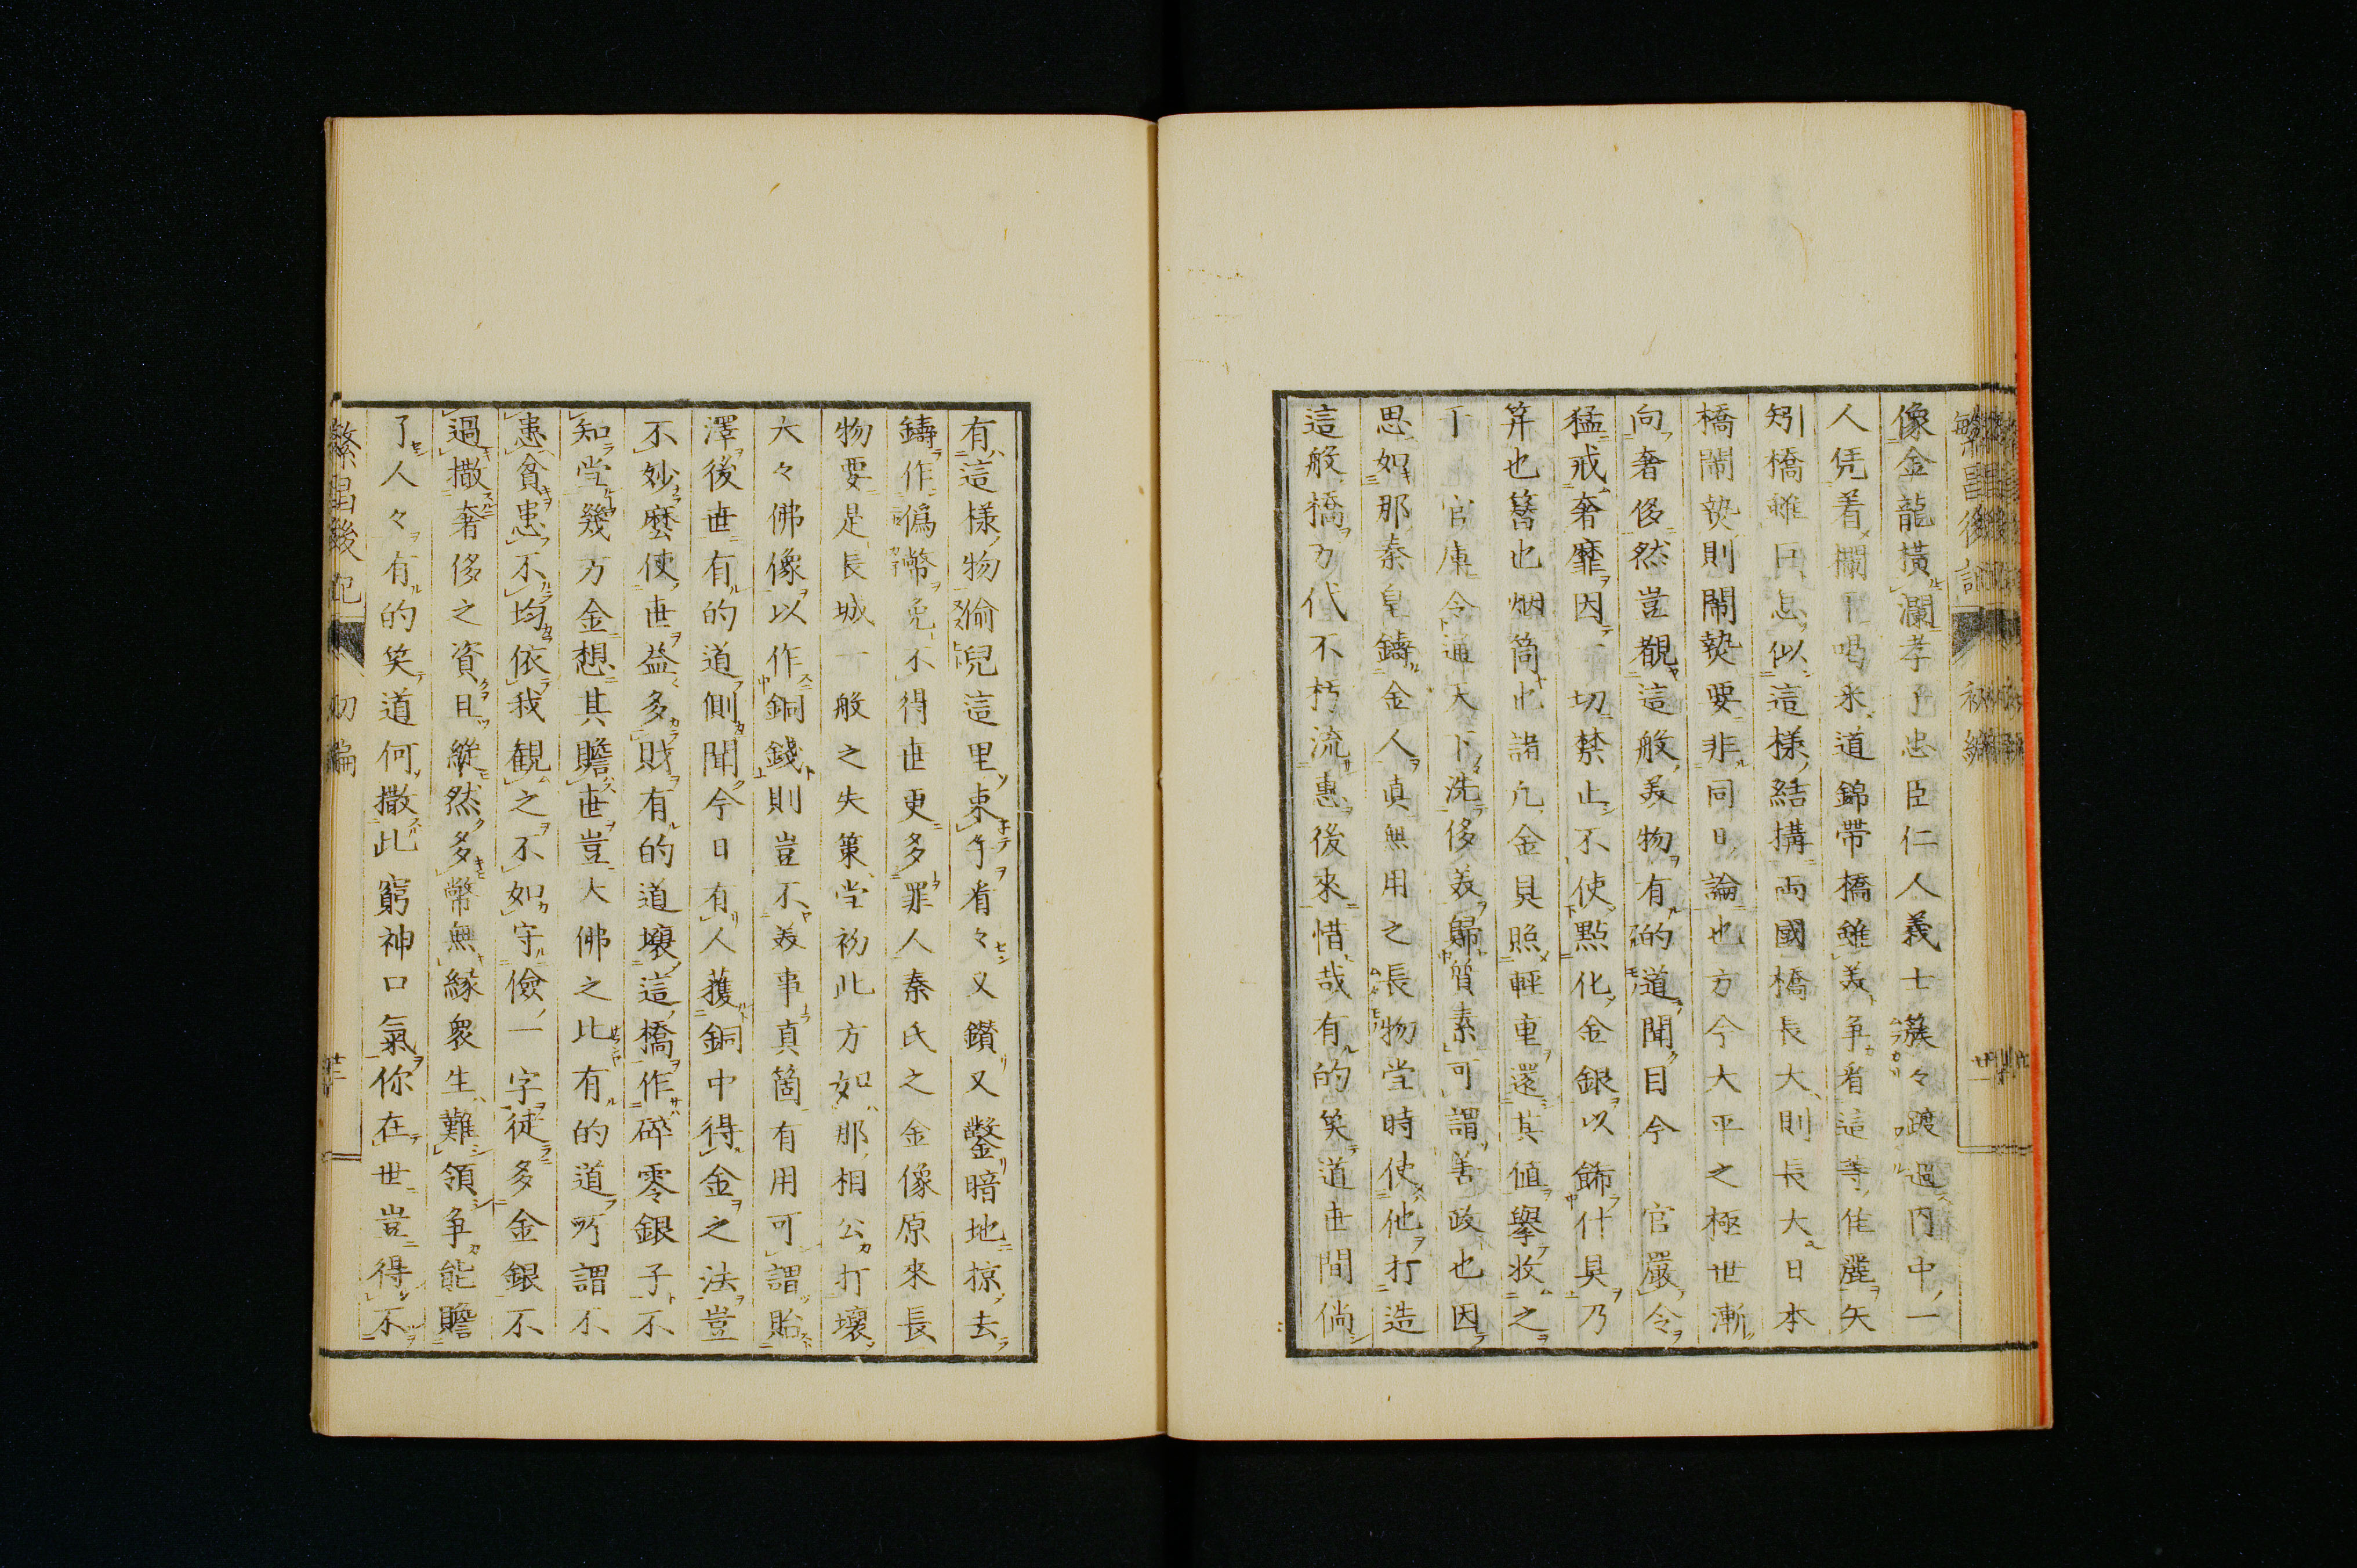 像金龍横瀾孝子忠臣仁人義士簇々踱過内中一
人凭着欄干喝釆道錦帶橋雖美争看這等隹麗矣
矧橋雖巨怎似這様結搆両國橋長大則長大日本
橋閙𤍠則閙𤍠要非同日論也方今大平之極世漸
向奢侈然豈覩這般美物有的道聞目今 官嚴令
猛戒奢靡因一切禁止不使點化金銀以餙什具乃
笄也簪也烟筒也諸凡金具照輕重還其値擧收之
于 官庫令通天下洗侈美歸質素可謂善政也因
思如那秦皇鑄金人真無用之長物當時使他打造
這般橋万代不朽流惠後來惜哉有的笑道世間倘
有這様物偷兒這里束手看々又鑚又鑿暗地掠去
鑄作偽幣免不得世更多罪人秦氏之金像原來長
物要是長城一般之失策當初此方如那相公打壞
大々佛像以作銅錢則豈不美事真箇有用可謂貽
澤後世有的道側聞今日有人獲銅中得金之法豈
不妙麼使世益多財有的道壞這橋作碎零銀子不
知當幾万金想其贍世豈大佛之比有的道所謂不
患貧患不均依我観之不如守儉一字徒多金銀不
過撒奢侈之資且縱然多幣無緣衆生難領争能贍
了人々有的笑道何撒此窮神口氣你在世豈得不
繁昌後記 初編